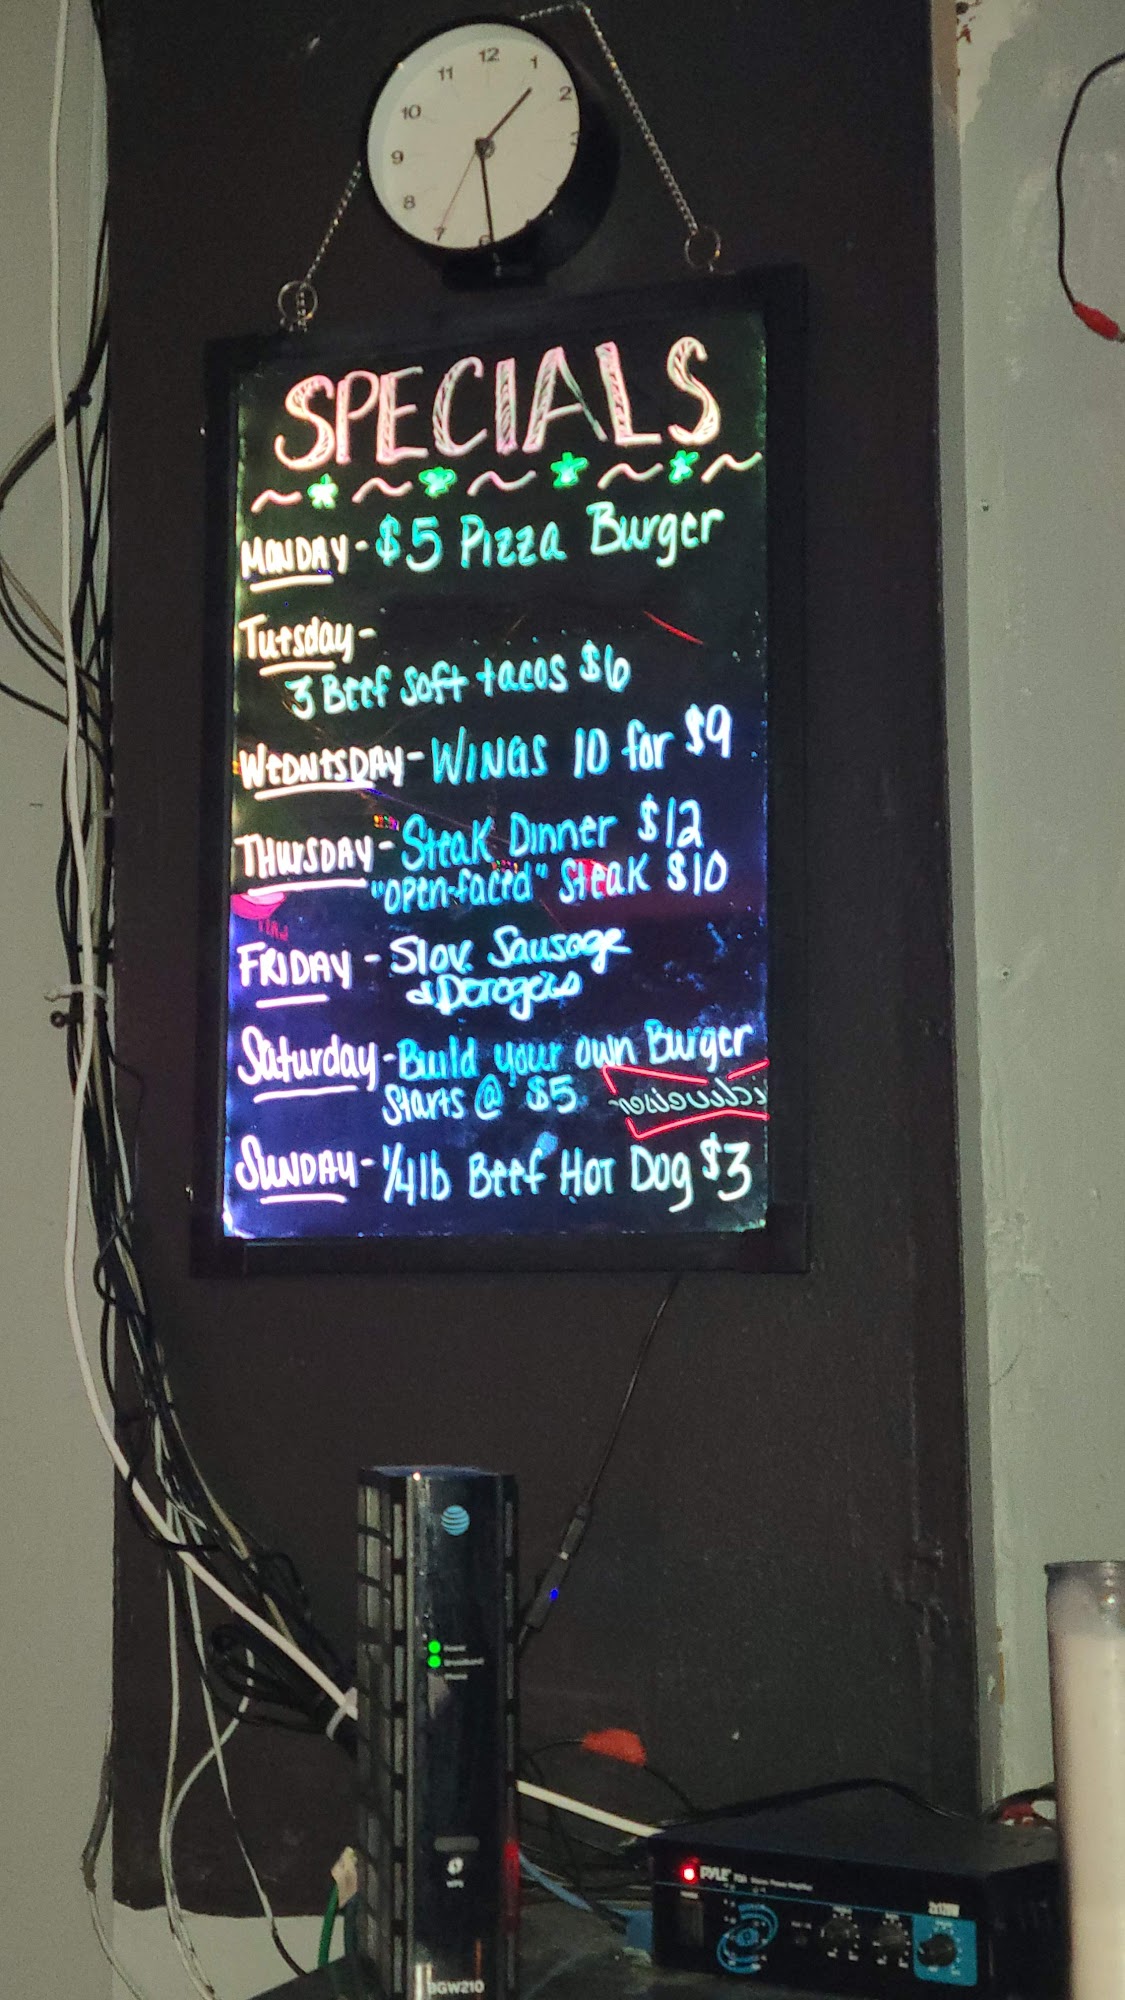 12
11
1
10
2
9
3
8
7
6
SPECIALS
MONDAY - $5 Pizza Burger
Tuesday -
3 Beef Soft tacos $6
WEDNESDAY - WINGS 10 for $9
THURSDAY - Steak Dinner $12
"OPEN-faced" Steak $10
FRIDAY - Slov. Sausage
& Perogies
Saturday - Build your own Burger
Starts @ $5
SUNDAY - 1/4 lb Beef HOT DOG $3
Power
Broadband
Phone
WPS
BGW210
PYLE Stereo Power Amplifier
2x120W